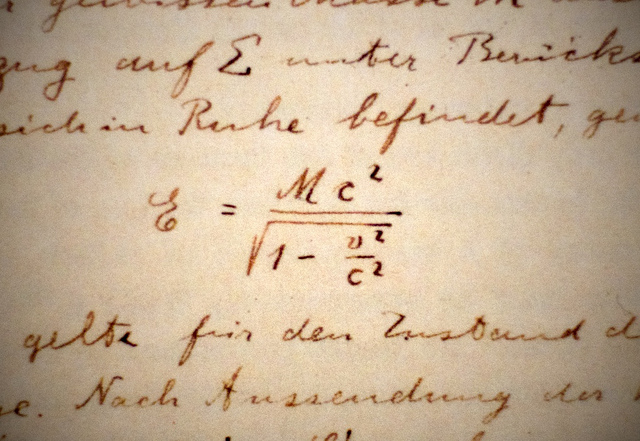 gewissen Masse M
auf Σ unter
sich in Ruhe befindet,
E = Mc² / √(1 - v²/c²)
gelte für den Zustand
Nach Aussendung der